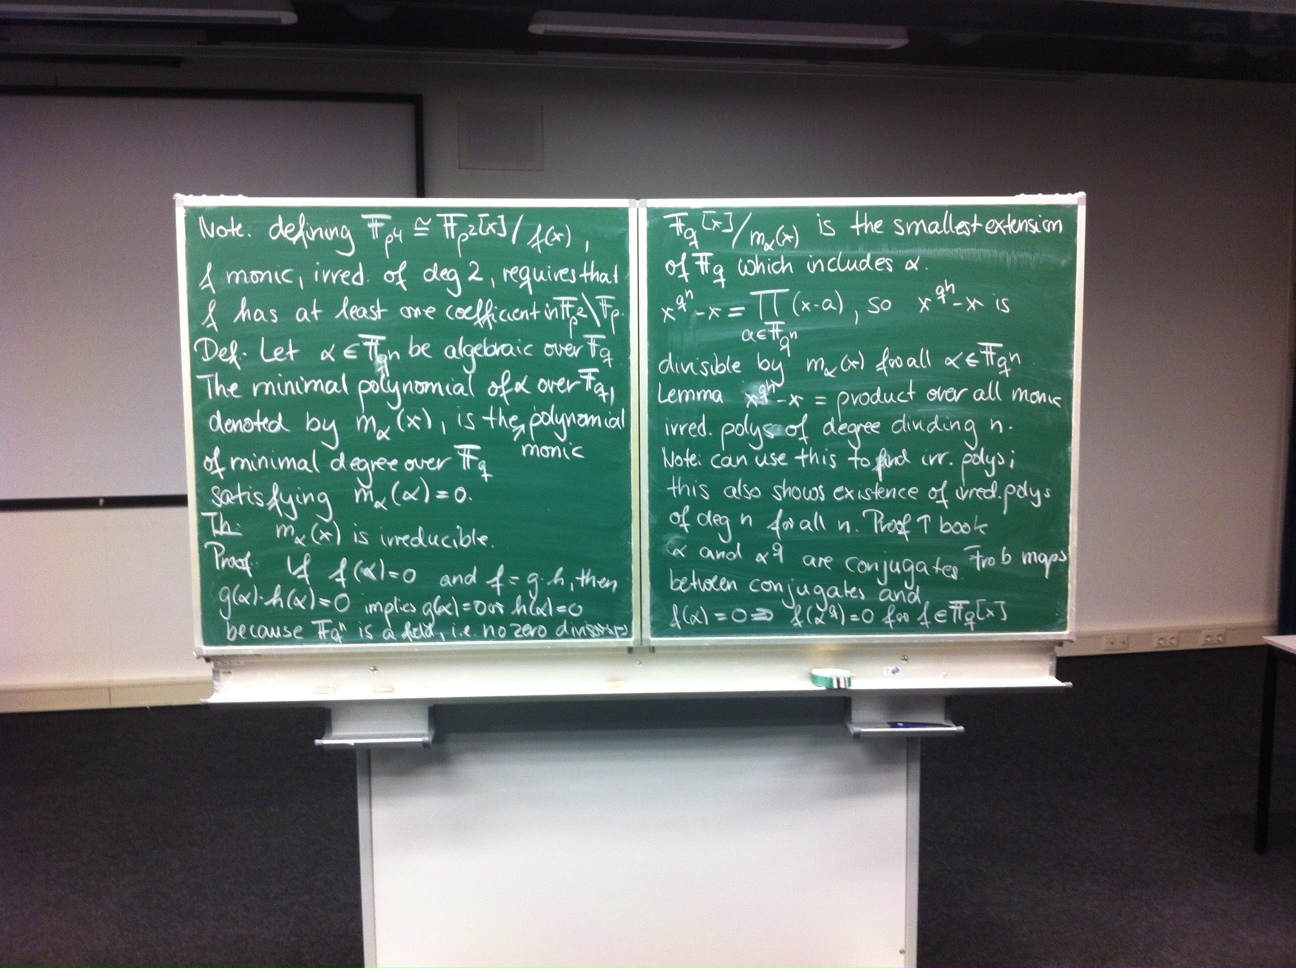 Note: defining 𝔽_p⁴ ≅ 𝔽_p²[x]/f(x),
f monic, irred. of deg 2, requires that
f has at least one coefficient in 𝔽_p²\𝔽_p.
Def: Let α ∈ 𝔽_qⁿ be algebraic over 𝔽_q
The minimal polynomial of α over 𝔽_q,
denoted by m_α(x), is the polynomial
monic
of minimal degree over 𝔽_q
satisfying m_α(α)=0.
Th: m_α(x) is irreducible.
Proof: If f(α)=0 and f=g·h, then
g(α)·h(α)=0 implies g(α)=0 or h(α)=0
because 𝔽_qⁿ is a field, i.e. no zero divisors
𝔽_q[x]/m_α(x) is the smallest extension
of 𝔽_q which includes α.
x^qⁿ-x = ∏ (x-a), so x^qⁿ-x is
a∈𝔽_qⁿ
divisible by m_α(x) for all α∈𝔽_qⁿ.
Lemma x^qⁿ-x = product over all monic
irred. polys of degree dividing n.
Note: can use this to find irr. polys;
this also shows existence of irred. polys
of deg n for all n. Proof ↑ book
α and α^q are conjugates. Frob maps
between conjugates and
f(α)=0 ⇒ f(α^q)=0 for f∈𝔽_q[x]